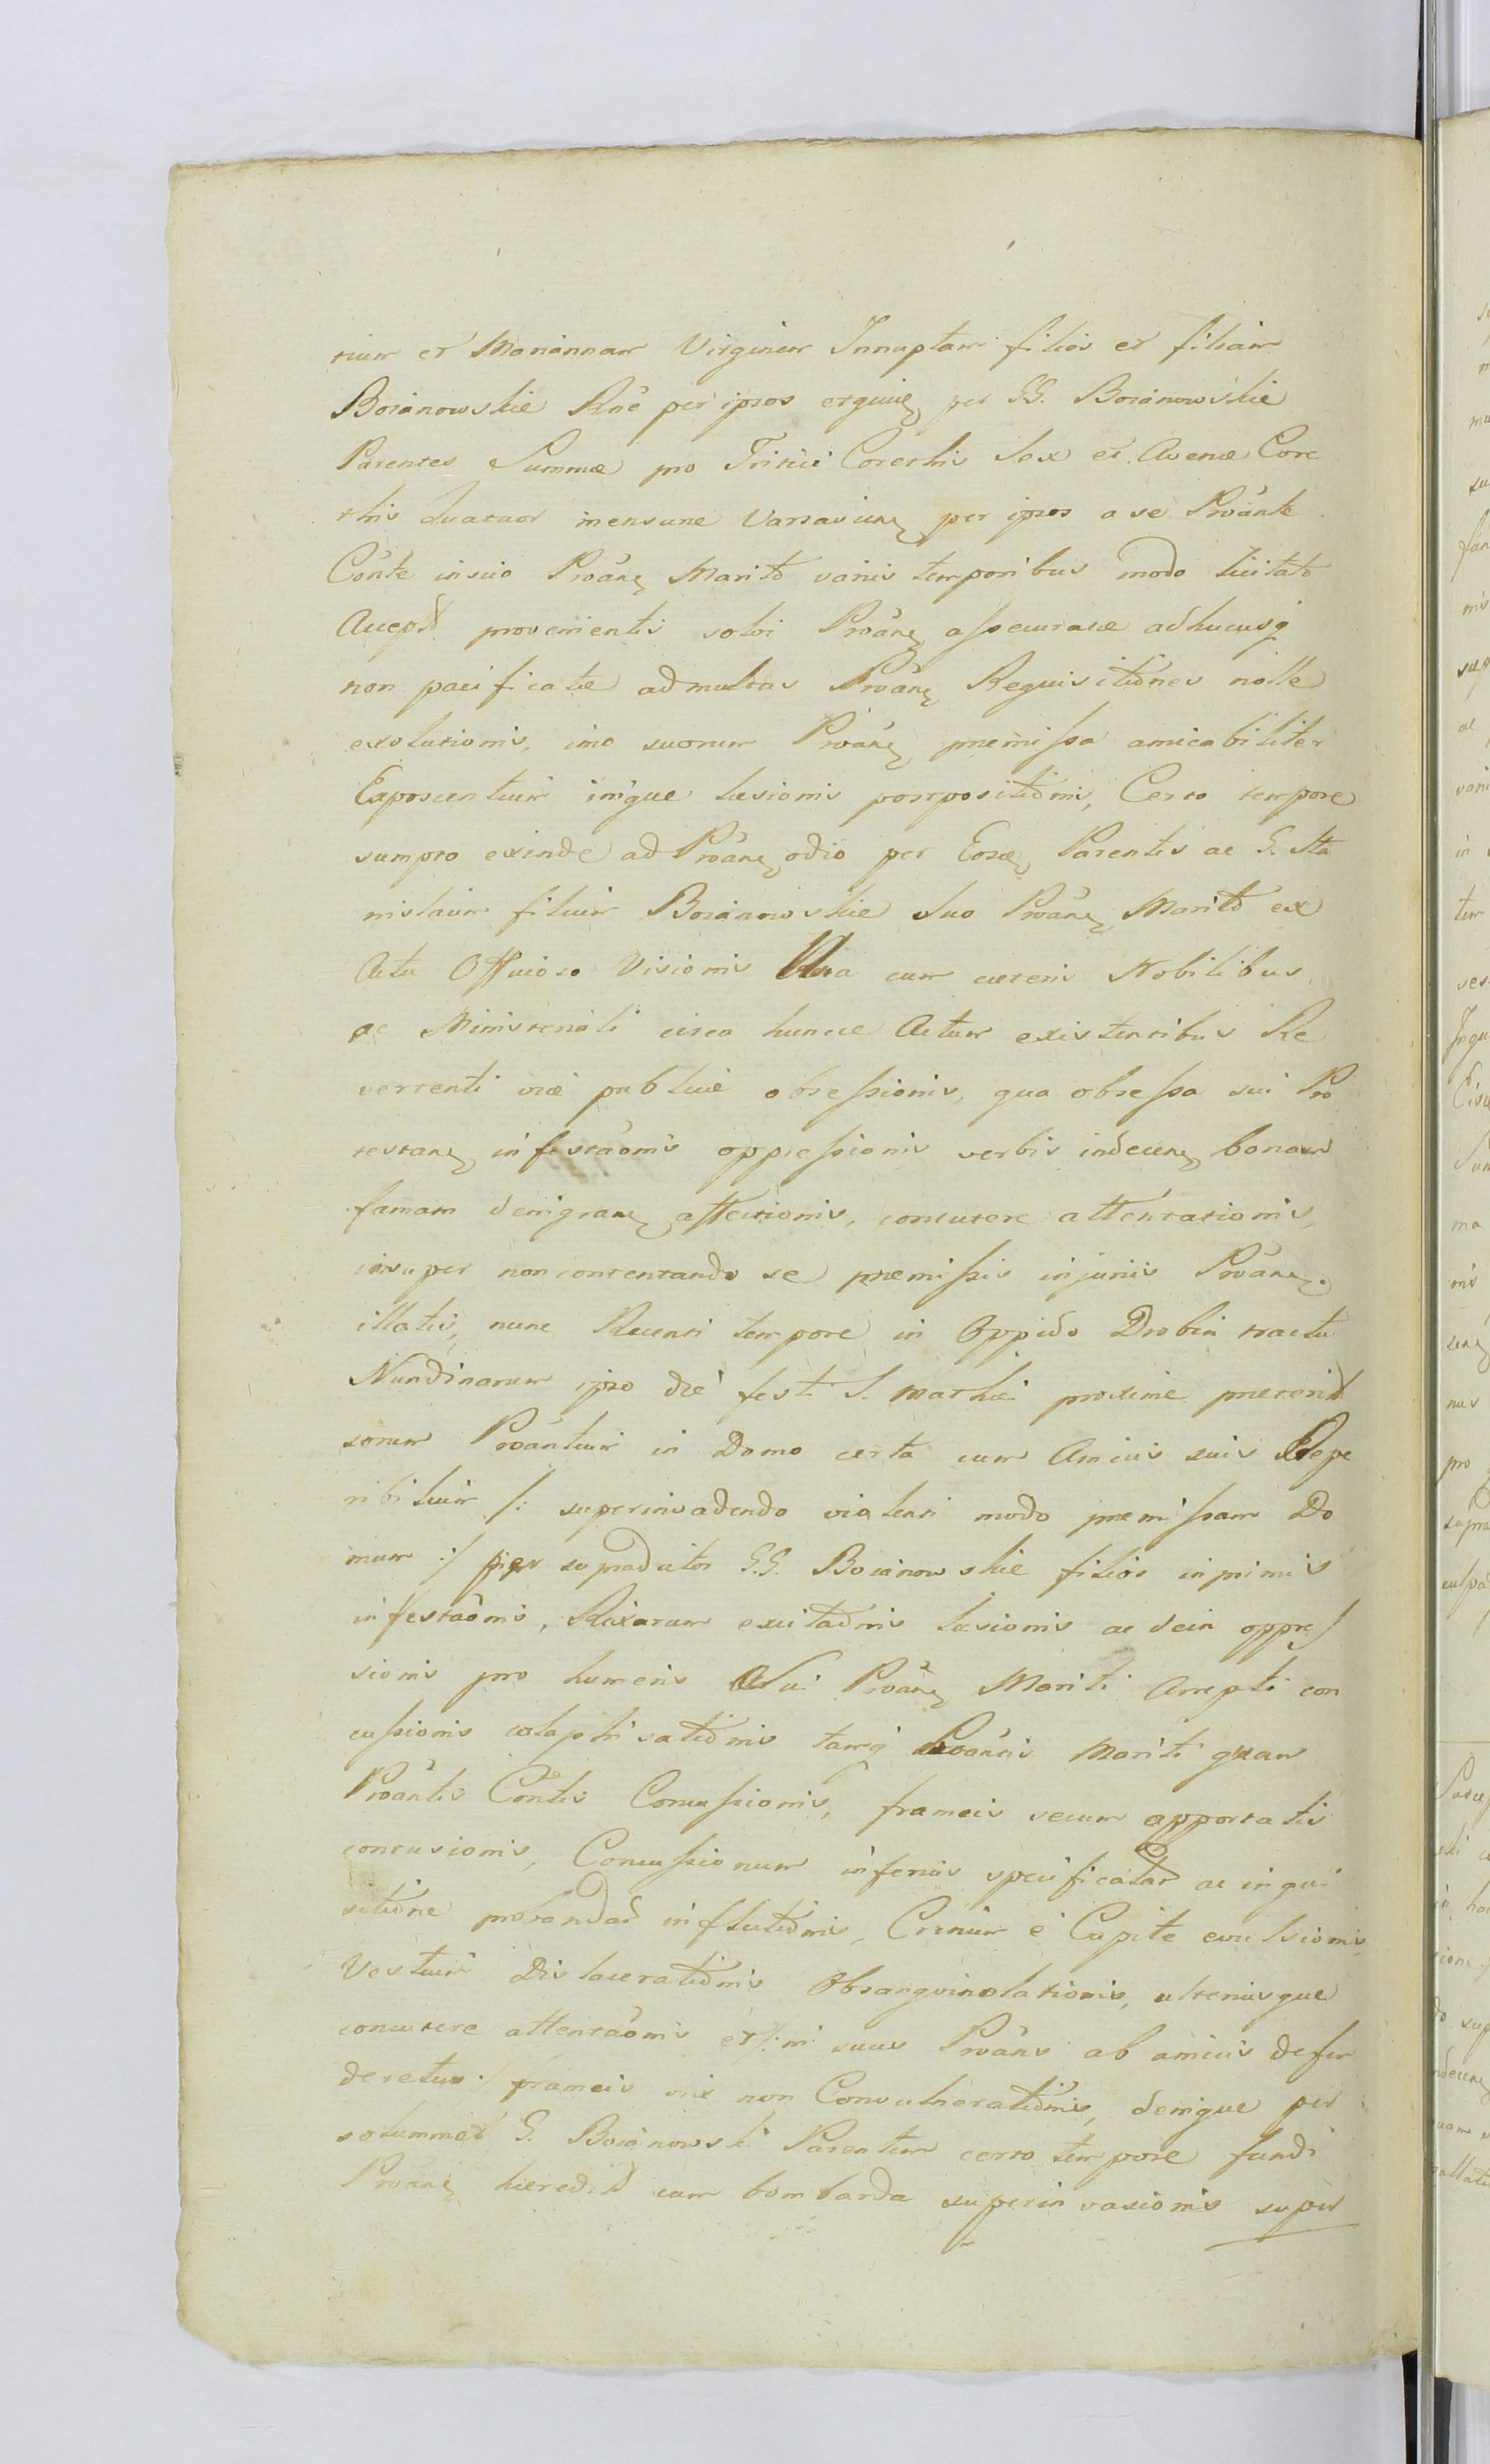 rium et Mariannam Virginem Innuptam filios et filiam
Boianowskie Rne per ipsos et GG. Boianowskie
Parentes Summæ pro Tritici Corethis Sex et Avenæ Core
this Quatuor mensuræ Varsavien per ipsos a se Proânte
Cônte in suo Proân Marito variis temporibus modo licitato
Accept provenientis solvi Proân assecuratæ adhucusq
non pacificatæ ad multas Proân Requisitiônes nolle
exolutionis, imo suorum Proân præmissa amicabiliter
Exposcentium inique læsionis postpositiônis, Certo tempore
sumpto exinde ad Proân odio per Eosd Parentes ac G. Sta
nislaum filium Boianowskie Suo Proân Marito ex
Actu Officioso Visionis Una cum cæteris Nobilibus
ac Ministeriali circa huncce Actum existentibus Re
vertenti viæ publicæ obsessionis, qua obsessa sui Pro
testan infestâonis oppressionis verbis indecen bonam
famam denigran affectionis, concutere attentationis,
insuper non contentando se præmissis injuriis Proân
illatis, nunc Recenti tempore in Oppido Drobin tractu
Nundinarum ipso die festi S. Mathæi proxime præterit
sorum Proântium in Domo certa cum Amicis suis Repe
ribilium /: superinvadendo violenti modo præmissam Do
mum :/ supradictos G.G. Boianowskie filios inprimis
infestâonis, Rixarum excitaônis læsionis ac dein oppres
sionis pro humeris Sui Proân Mariti Arrepti con
cussionis colaphisatiônis tamq Proântis Mariti quam
Proântis Côntis Concussionis, frameis secum apportatis
contusionis, Concussionum inferius specificatar ac inqui
sitiône probandar inflictiônis, Crinium e Capite evulsionis,
Vestium Dislaceratiônis Obsanguinolationis, ulteriusque
concutere attentâonis et /: ni suus Proâns ab amicis defen
deretur :/ frameis vix non Convulneratiônis, denique per
solummod G. Boianowski Parentem certo tempore fundi
Proân hæredit cum bombarda superinvasionis super